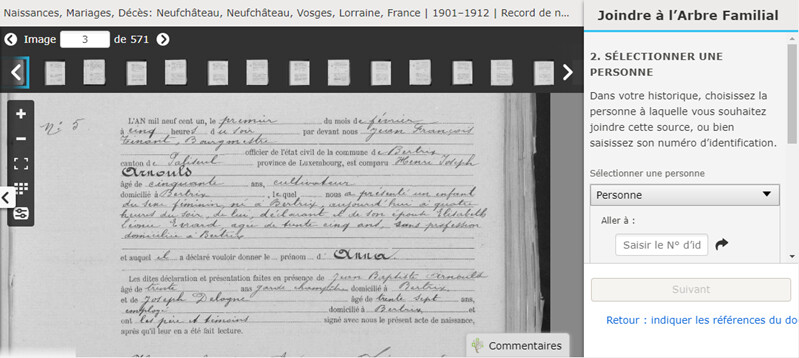 Naissances, Mariages, Décès: Neufchâteau, Neufchâteau, Vosges, Lorraine, France | 1901–1912 | Record de n...
Image 3 de 571
N° 5
L'AN mil neuf cent un, le premier du mois de février
à cinq heures du soir par devant nous Jean François
Bourgmestre
officier de l'état civil de la commune de Bertrix
canton de Paliseul province de Luxembourg, est comparu Henri Joseph
Arnould
âgé de cinquante ans, cultivateur
domicilié à Bertrix, lequel nous a présenté un enfant
du sexe féminin, né à Bertrix, aujourd'hui à quatre
heures du soir, de lui, déclarant et de son épouse Elisabeth
Evrard, agée de trente cinq ans, sans profession
domiciliée à Bertrix
et auquel il a déclaré vouloir donner le prénom d' Anna.
Les dites déclaration et présentation faites en présence de Jean Baptiste Arnould
âgé de trente ans garde champêtre domicilié à Bertrix
et de Joseph Delogne âgé de trente sept ans,
employé domicilié à Bertrix et
ont les père et témoins signé avec nous le présent acte de naissance,
après qu'il leur en a été fait lecture.
Commentaires
Joindre à l'Arbre Familial
2. SÉLECTIONNER UNE
PERSONNE
Dans votre historique, choisissez la
personne à laquelle vous souhaitez
joindre cette source, ou bien
saisissez son numéro d'identification.
Sélectionner une personne
Personne
Aller à :
Saisir le N° d'id
Suivant
Retour : indiquer les références du do